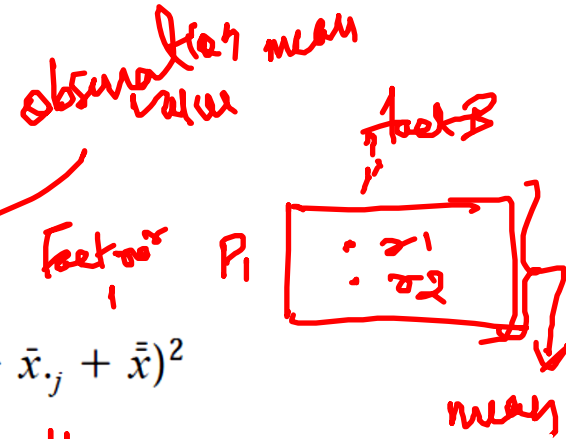 observation mean
value
fact B
Factor P1
1
r1
r2
x̄.ⱼ + x̿)²
mean